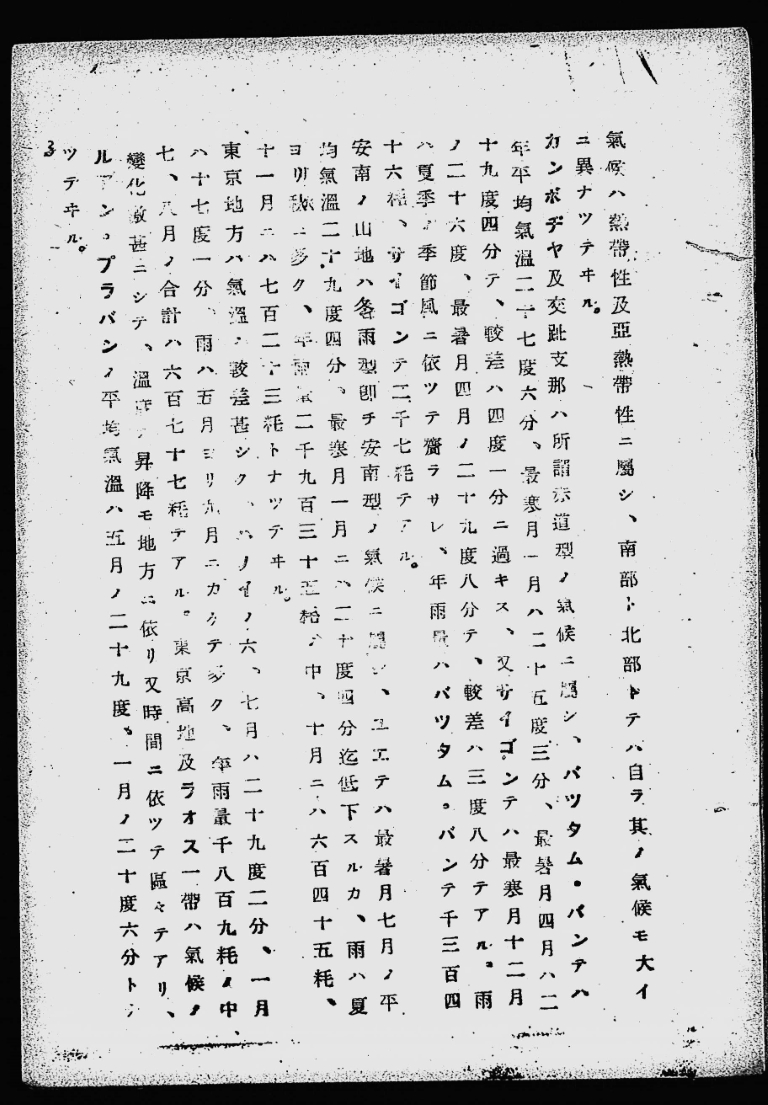 氣候ハ熱帶性及亞熱帶性ニ屬シ、南部ト北部トテハ自ラ其ノ氣候モ大イ
ニ異ナツテヰル。
カンボヂヤ及交趾支那ハ所謂赤道型ノ氣候ニ屬シ、バツタム・バンテハ
年平均氣溫二十七度六分、最寒月一月ハ二十五度三分、最暑月四月ハ二
十九度四分テ、較差ハ四度一分ニ過キス、又サイゴンテハ最寒月十二月
ノ二十六度、最暑月四月ノ二十九度八分テ、較差ハ三度八分テアル。雨
ハ夏季ノ季節風ニ依ツテ齎ラサレ、年雨量ハバツタム。バンテ千三百四
十六粍、サイゴンテ二千七粍テアル。
安南ノ山地ハ各雨型卽チ安南型ノ氣候ニ屬シ、ユエテハ最暑月七月ノ平
均氣溫二十九度四分、最寒月一月ニハ二十度四分迄低下スルカ、雨ハ夏
ヨリ秋ニ多ク、年雨量二千九百三十五粍ノ中、十月ニハ六百四十五粍、
十一月ニハ七百二十三粍トナツテヰル。
東京地方ハ氣溫ノ較差甚シク、ハノイノ六、七月ハ二十九度二分、一月
ハ十七度一分、雨ハ五月ヨリ九月ニカケテ多ク、年雨量千八百九粍ノ中、
七、八月ノ合計ハ六百七十七粍テアル。東京高地及ラオス一帶ハ氣候ノ
變化激甚ニシテ、溫度ノ昇降モ地方ニ依リ又時間ニ依ツテ區々テアリ、
ルアン・プラバンノ平均氣溫ハ五月ノ二十九度、一月ノ二十度六分トナ
ツテヰル。
3